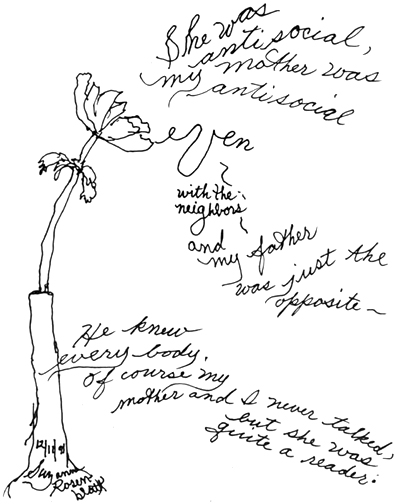 She was
antisocial,
my mother was
~ antisocial
even
with the
neighbors
and
my father
was just the
opposite ~
He knew
every body.
Of course my
mother and I never talked,
but she was
quite a reader.
Suzanne
Rosen
blatt